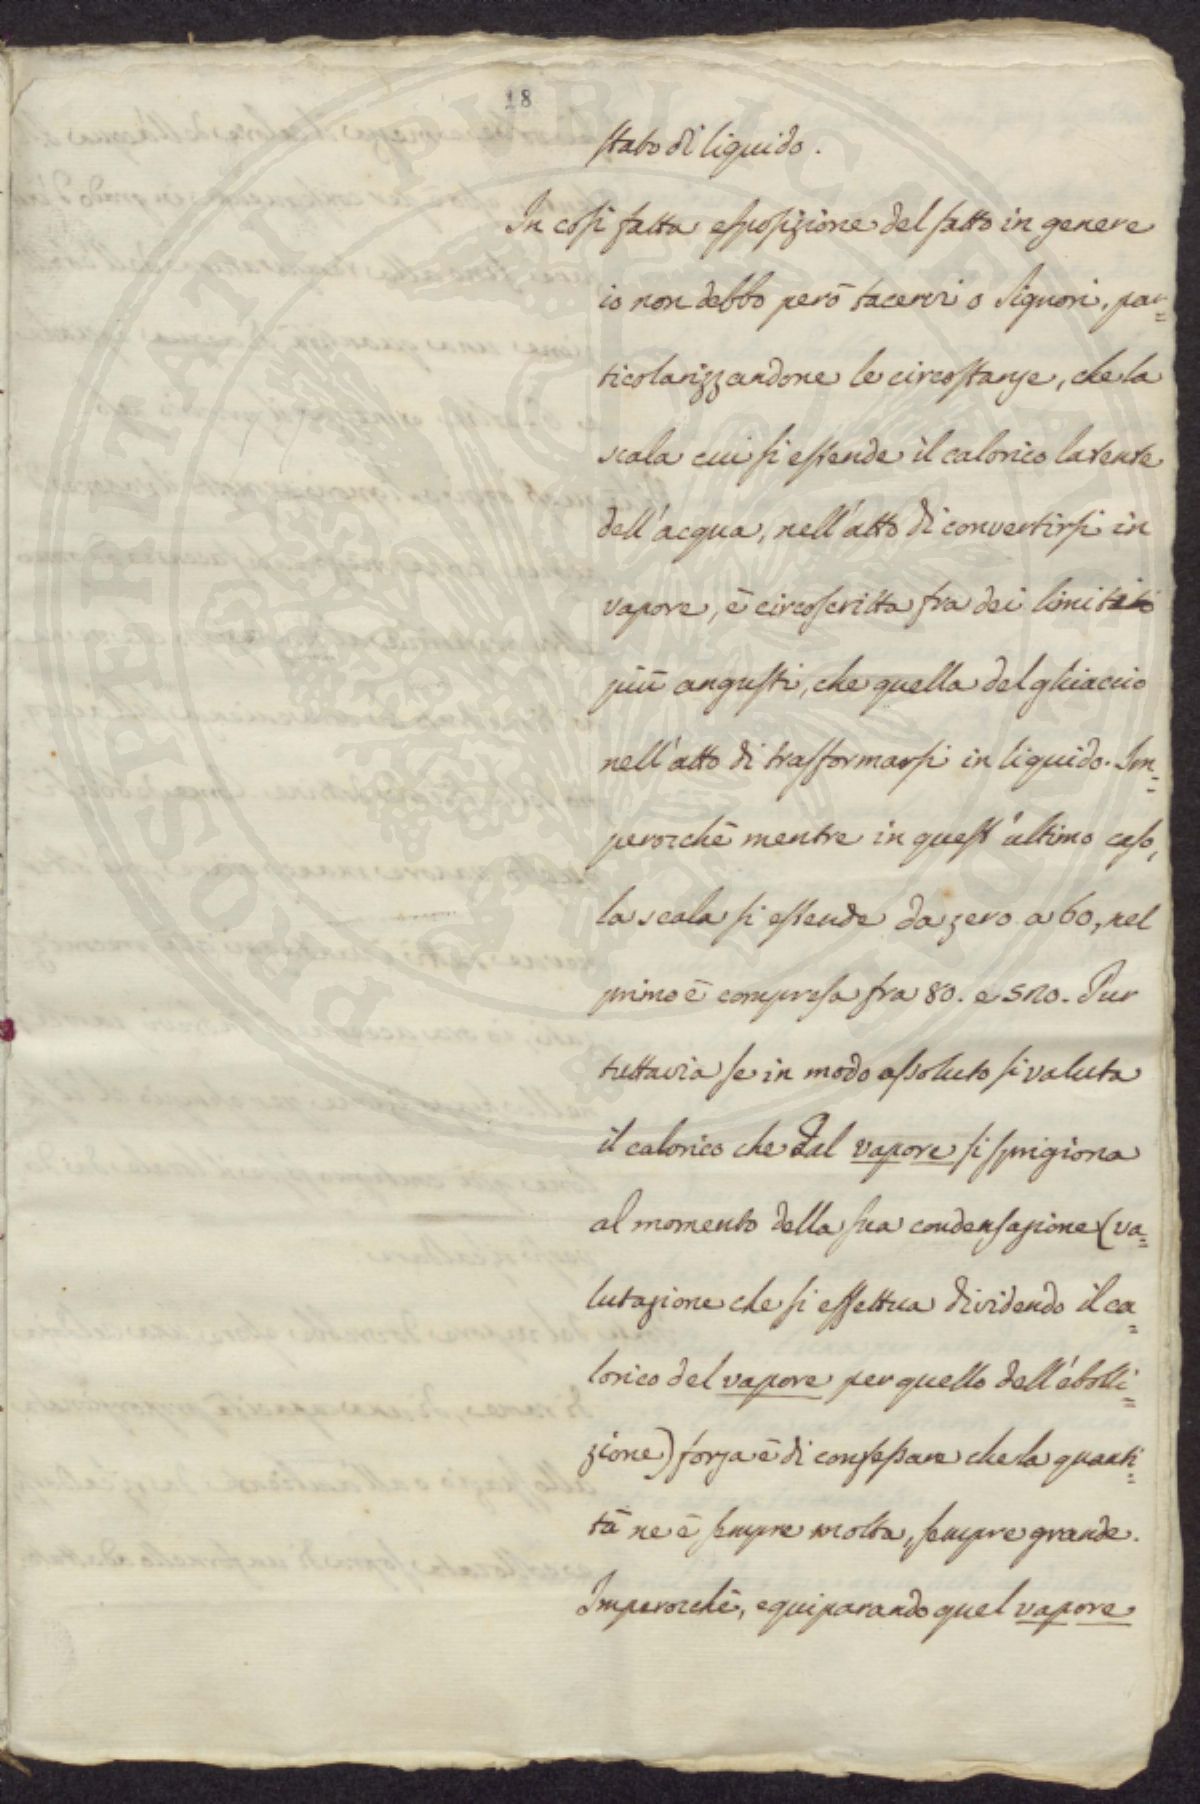 18
stato di liquido.
In così fatta esposizione del fatto in genere
io non debbo però tacervi o Signori, par=
ticolarizzandone le circostanze, che la
scala cui si estende il calorico latente
dell'acqua, nell'atto di convertirsi in
vapore, è circoscritta fra dei limiti
più angusti, che quella del ghiaccio
nell'atto di trasformarsi in liquido. Im=
perocchè mentre in quest'ultimo caso,
la scala si estende da zero a 60, nel
primo è compresa fra 80. e 520. Pur
tuttavia se in modo assoluto si valuta
il calorico che dal vapore si sprigiona
al momento della sua condensazione (va=
lutazione che si effettua dividendo il ca=
lorico del vapore per quello dell'ebolli=
zione) forza è di confessare che la quanti=
tà ne è sempre molta, sempre grande.
Imperocchè, equiparando quel vapore
PROSPERITATI PUBLICAE AUGENDAE